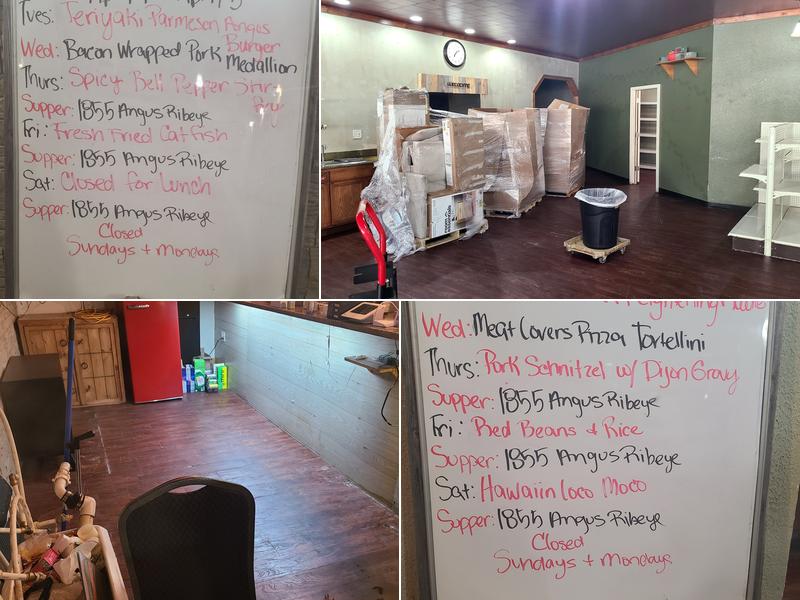 Tues: Teriyaki Parmesan Angus
Burger
Wed: Bacon Wrapped Pork Medallion
Thurs: Spicy Bell Pepper Stir
Fry
Supper: 1855 Angus Ribeye
Fri: Fresh Fried Catfish
Supper: 1855 Angus Ribeye
Sat: Closed for Lunch
Supper: 1855 Angus Ribeye
Closed
Sundays + Mondays
WELCOME
Wed: Meat Lovers Pizza Tortellini
Thurs: Pork Schnitzel w/ Dijon Gravy
Supper: 1855 Angus Ribeye
Fri: Red Beans & Rice
Supper: 1855 Angus Ribeye
Sat: Hawaiin Loco Moco
Supper: 1855 Angus Ribeye
Closed
Sundays + Mondays